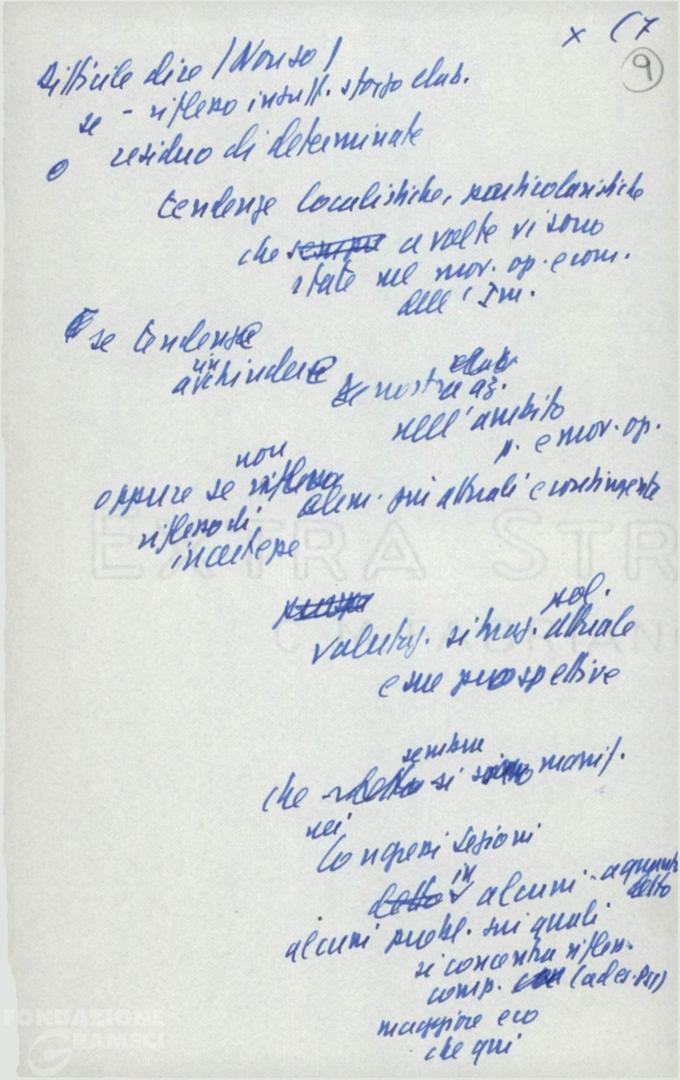 x (7
9
Difficile dire (Non so)
se - riflesso insuff. sforzo elab.
o residuo di determinate
tendenze localistiche, particolaristiche
che sempre a volte vi sono
state nel mov. op. e com.
dell' Im.
se tendenza
in
a rinchiudere
elab.
nostra az.
nell'ambito
p. e mov. op.
non
oppure se riflesso
riflesso di elem. più attuali e contingente
incertezze
pol.
valutaz. situaz. attuale
e sue prospettive
sembra
che si manif.
nei
Congressi Sezioni
detto in alcuni - aggiunto
detto
alcuni probl. sui quali
si concentra rifless.
comp. (ad es. PSI)
maggiore eco
che qui
EXTRA STR
FONDAZIONE
GRAMSCI